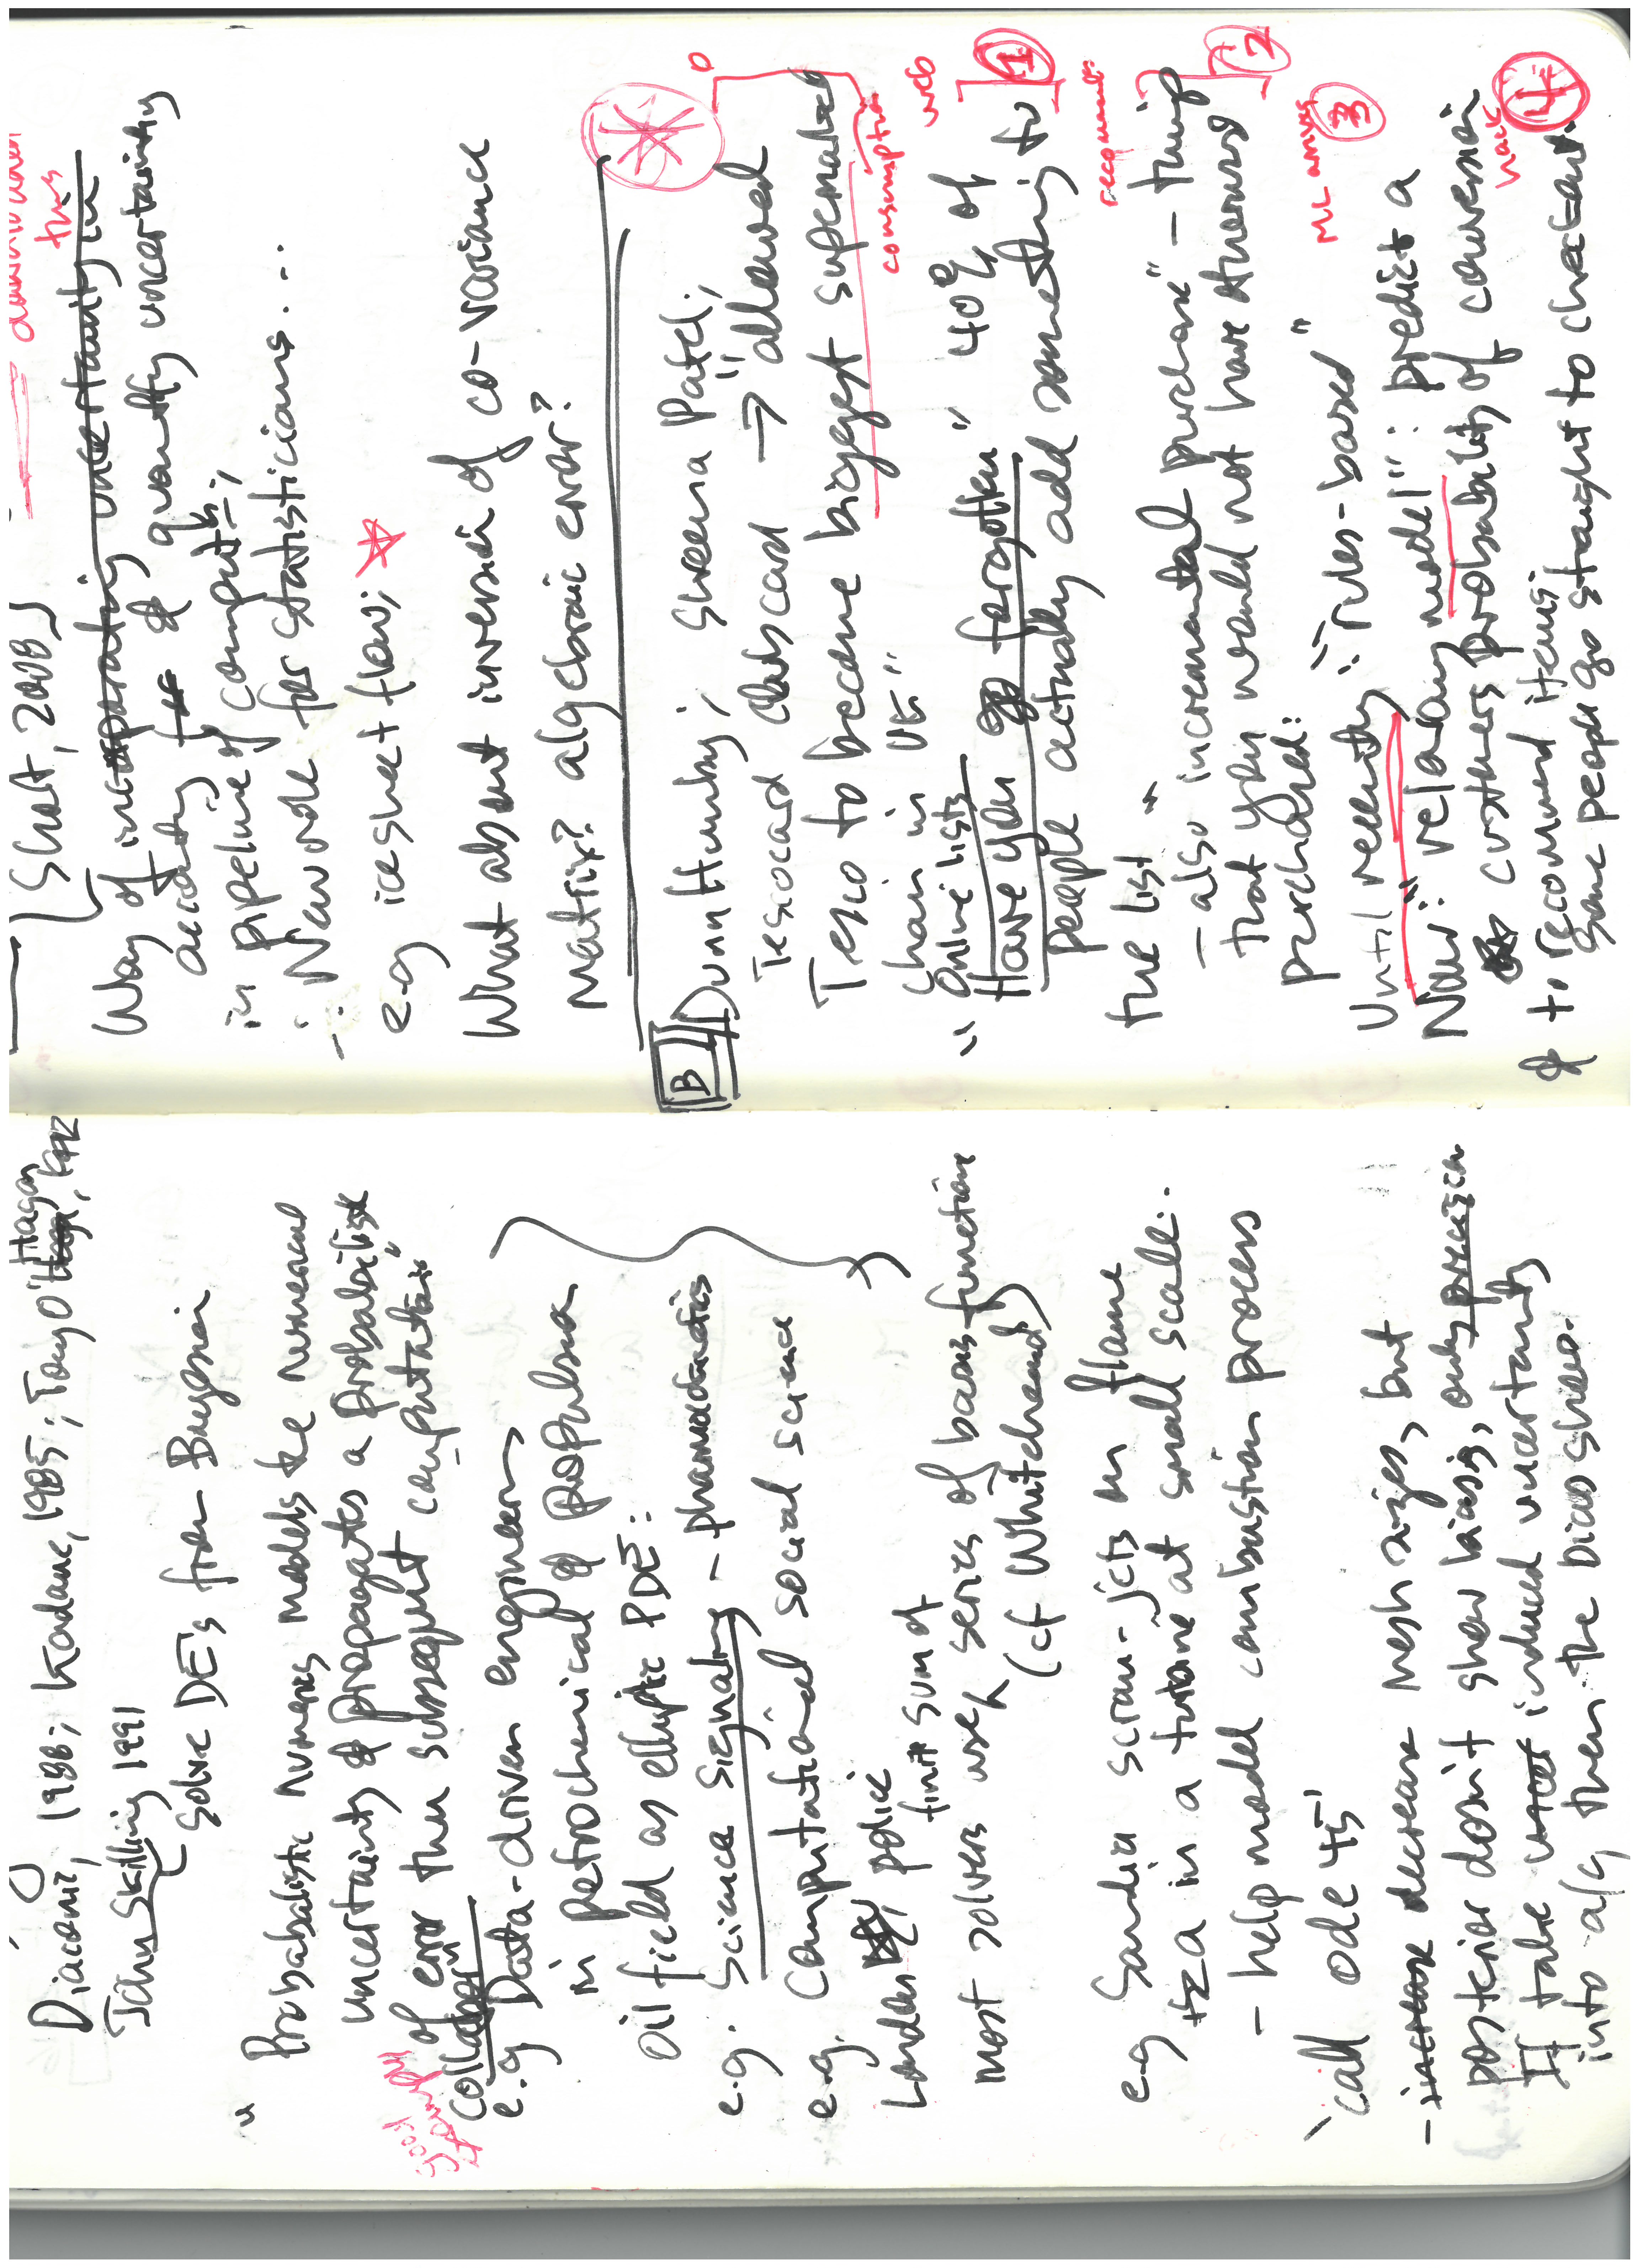 Diaconis, 1988; Kadane, 1985; Tony O'Hagan, 1992
John Skilling 1991
Solve DEs from Bayesian
"Probabalistic numerics models the numerical
uncertainty & propagates a probabilistic
of error thru subsequent computation"
good example
collaborn
e.g Data-driven engineering
in petrochemical & propulsion
oil field as elliptic PDE:
e.g. science signaling - pharmacokinetics
e.g. computational social science
London police
most solvers use finite sum of series of basis function
(cf Whitehead)
e.g Sandia scram-jets on flame
in a turbine at small scale..
- help model combustion process
'call ode 45'
- increase decrease mesh sizes, but
posterior doesn't show biases, only precision
If take induced uncertainty
into a/c then the bias shows.
[Stat, 2008]
this
Way of incorporating uncertainty in
accounting for & quantify uncertainty
in pipeline of comput=;
∴ New role for statisticians...
e.g icesheet flow;
What about inversion of co-variance
matrix? algebraic error?
B Dunn Humby; Sheena Patel;
Tescocard clubcard → "allowed
0
Tesco to become biggest supermarket
consumption
chain in UK"
web
online lists
1
"Have you forgotten" 40% of
people actually add something to
the list"
recommends
- also incremental purchase" - things
2
that you would not have otherwise
purchased:
ML arrives
3
Until recently "rules-based"
Now: "relevancy model": predict a
customers probability of conversion
4
& to recommend items
some people go straight to checkout.